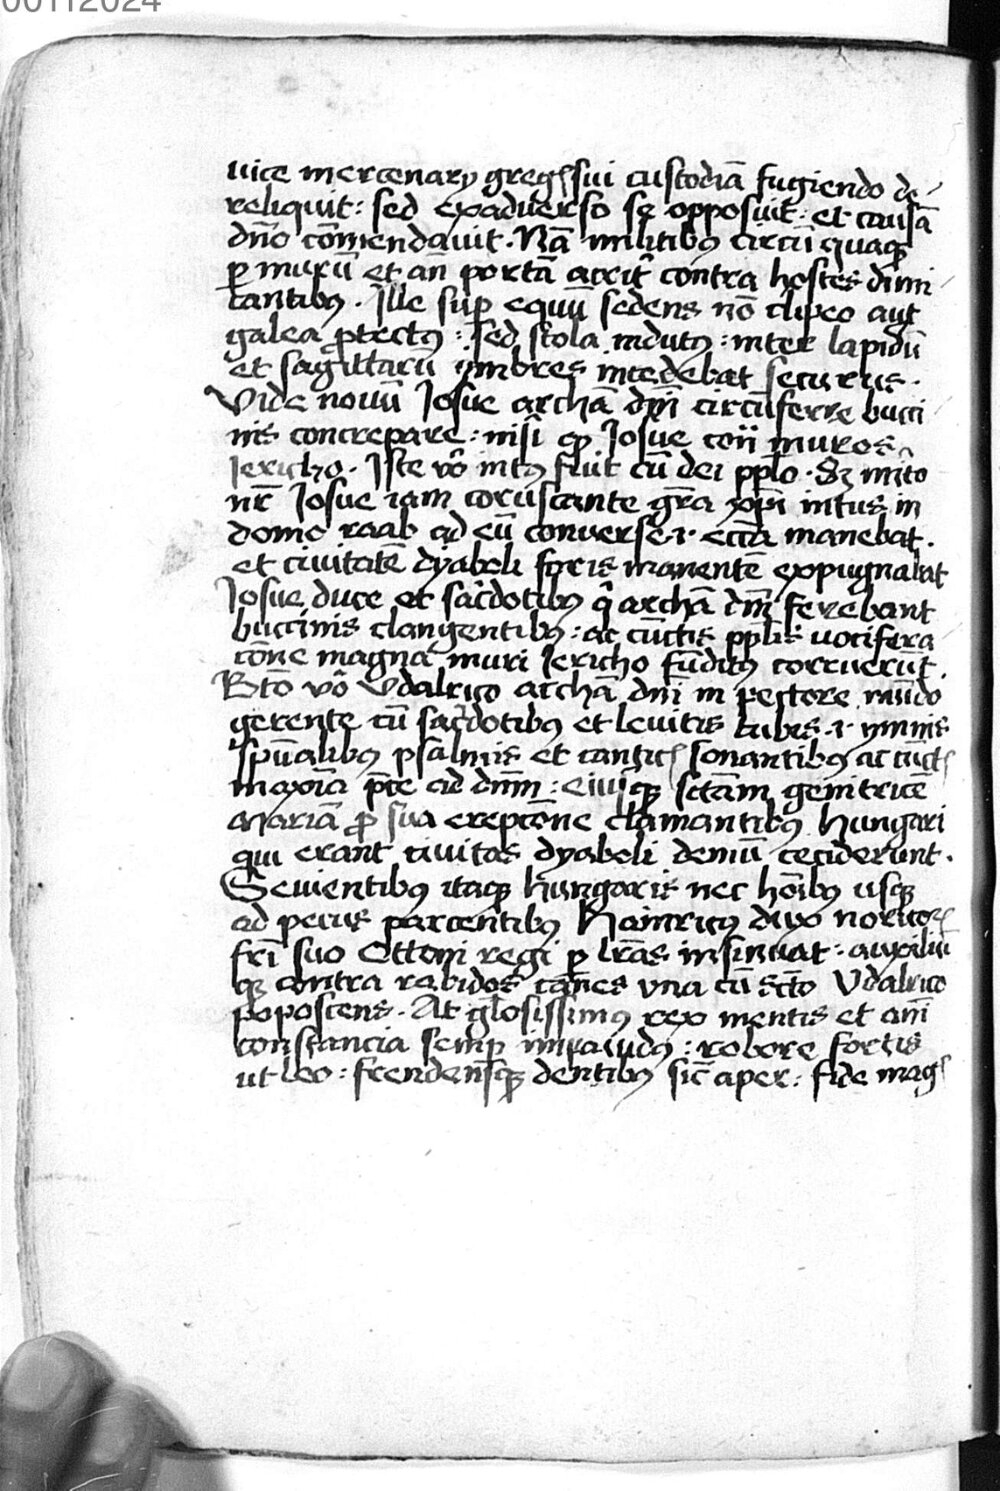 00112024
uice mercenarij gregꝭ sui custodiā fugiendo de
reliquit : sed exaduerso se opposuit : et causā
dn̄o cōmendauit . Nā militibꝰ circū quaqꝫ
ꝑ murū et an̄ portā acrit᷑ contra hostes dimi
cantibꝰ . Ille suꝑ equū sedens nō clipeo aut
galea ꝓtectꝰ : sed stola indutꝰ : inter lapidū
et sagittarū ymbres incedebat securus .
Vide nouū Josue archā dn̄i circūferre bucci
nis concrepare : nisi ꝙ Josue muros
Jericho . Iste vō intꝰ fuit cū dei pp̄lo . Sꝫ mīto
nr̄ Josue iam coruscante gr̄a xp̄i intus in
domo raab ad eū conuerse .i. eccīa manebat .
et ciuitatē dyaboli foris manentē expugnabat
Josue duce et sac̄dotibꝰ q̄ archā dn̄i ferebant
buccinis clangentibꝰ : ac cūctis pp̄lis uocifera
cōne magna muri Jericho fūditꝰ corruerūt .
Btō vō Vdalrico archā dn̄i in pectore mūdo
gerente cū sac̄dotibꝰ et leuitis tubis .i. ymnis
sp̄ualibꝰ psalmis et canticꝭ sonantibꝰ ac cūctꝭ
maxīa p̄ce ad dn̄m : eiusqꝫ sc̄tam genitricē
Mariā ꝓ sua erepcōne clamantibꝰ Hungari
qui erant ciuitas dyaboli demū ceciderunt .
Seuientibꝰ itaqꝫ hungaris nec hōibꝰ usqꝫ
ad pecus parcentibꝰ Hainricꝰ dux noricorꝭ
fr̄i suo Ottoni regi ꝑ lr̄as insinuat : auxiliū
qꝫ contra rabidos canes vna cū sc̄to Vdalrico
poposcens . At gl̄osissimꝰ rex mentis et an̄i
constancia semꝑ impauidꝰ : robore fortis
ut leo : frendensqꝫ dentibꝰ sic̄ aper : fide magꝭ